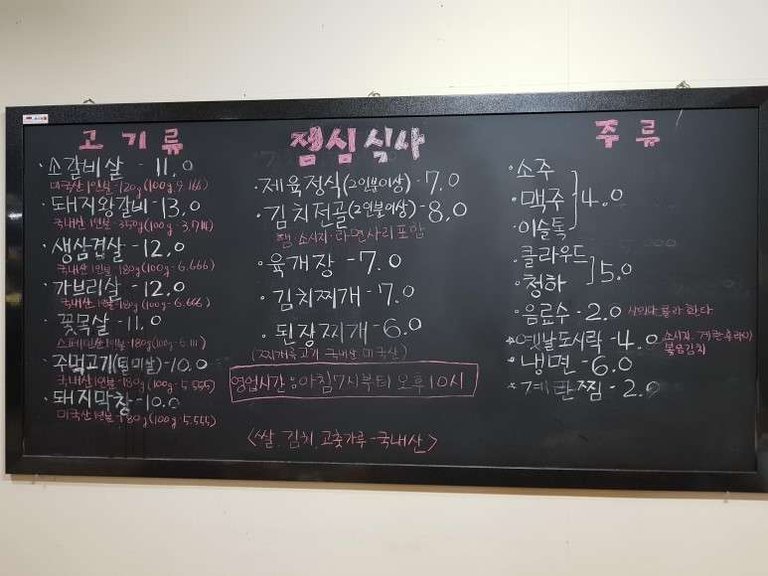 고기류
· 소갈비살 - 11.0
미국산 1인분 - 120g (100g 9.166)
· 돼지왕갈비 - 13.0
국내산 1인분 - 350g (100g - 3.714)
· 생삼겹살 - 12.0
국내산 1인분 - 180g (100g - 6.666)
· 가브리살 - 12.0
국내산 1인분 180g (100g - 6.666)
· 꽃목살 - 11.0
스페인산 1인분 - 180g (100g - 6.111)
· 주먹고기 - 10.0
국내산 1인분 - 180g (100g - 5.555)
· 돼지막창 - 10.0
미국산 1인분 - 180g (100g - 5.555)
점심식사
· 제육정식 (2인분이상) - 7.0
· 김치전골 (2인분이상) - 8.0
햄 · 소시지 · 라면사리 포함
· 육개장 - 7.0
· 김치찌개 - 7.0
· 된장찌개 - 6.0
(찌개류 고기 국내산 미국산)
영업시간 : 아침 7시부터 오후 10시
<쌀. 김치. 고춧가루 - 국내산>
주류
· 소주
· 맥주 4.0
· 이슬톡
· 클라우드
· 청하 5.0
· 음료수 - 2.0
· 옛날도시락 - 4.0 소시지. 계란후라이
볶음김치
· 냉면 - 6.0
· 계란찜 - 2.0